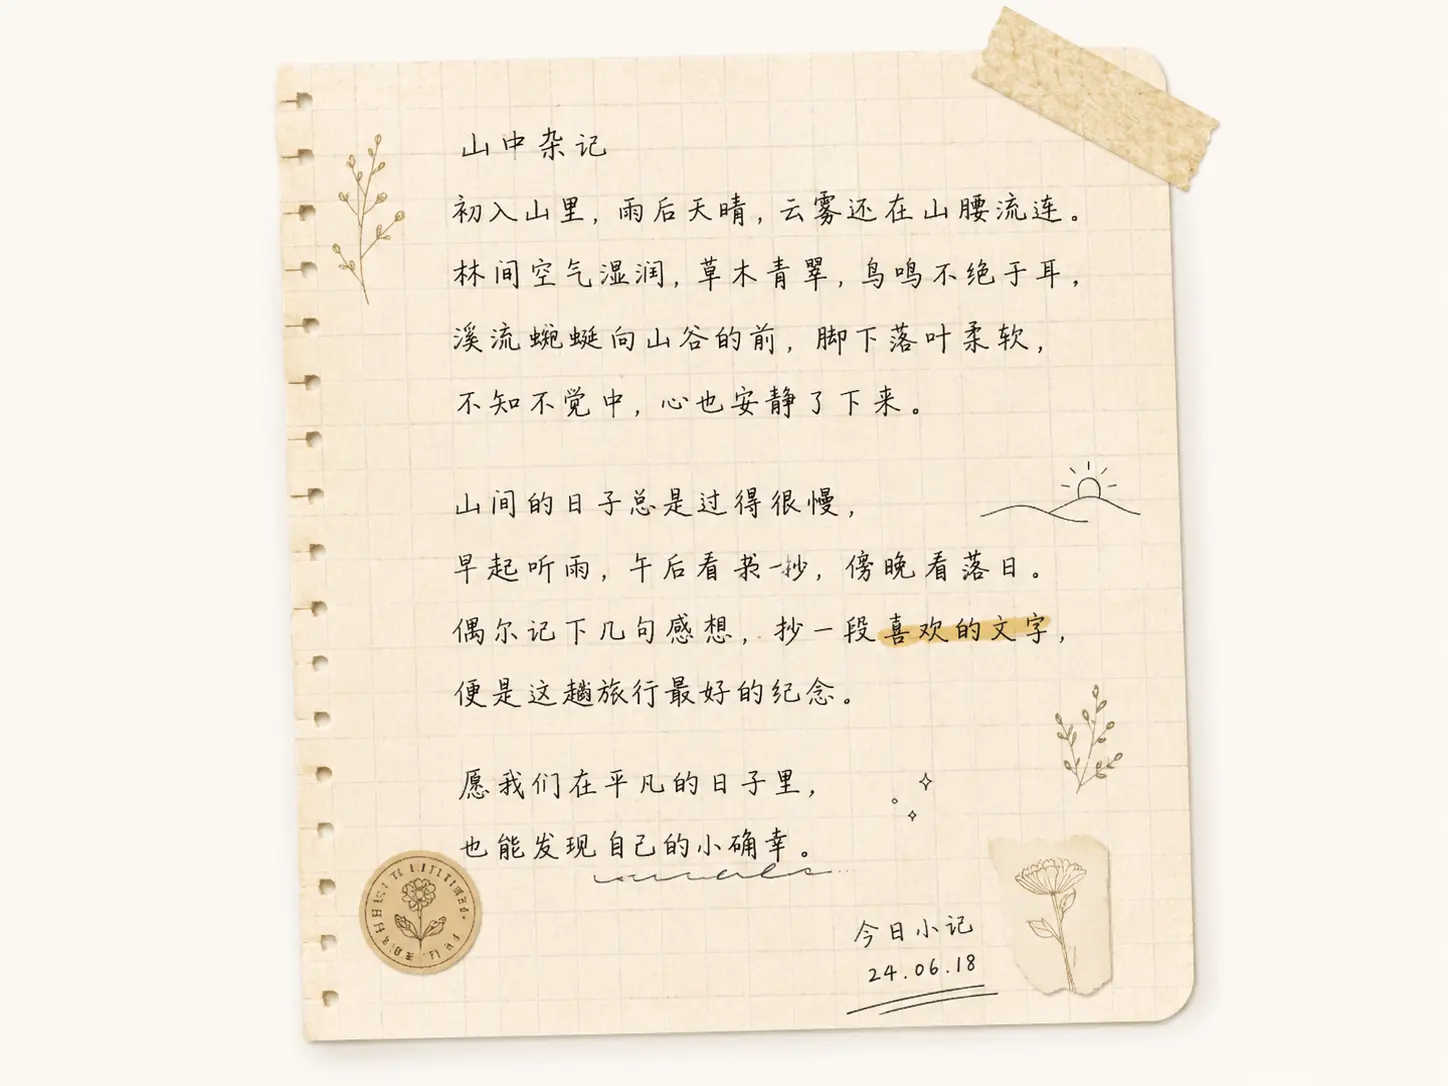 山中杂记
初入山里，雨后天晴，云雾还在山腰流连。
林间空气湿润，草木青翠，鸟鸣不绝于耳，
溪流蜿蜒向山谷的前，脚下落叶柔软，
不知不觉中，心也安静了下来。
山间的日子总是过得很慢，
早起听雨，午后看书一抄，傍晚看落日。
偶尔记下几句感想，抄一段喜欢的文字，
便是这趟旅行最好的纪念。
愿我们在平凡的日子里，
也能发现自己的小确幸。
今日小记
24.06.18